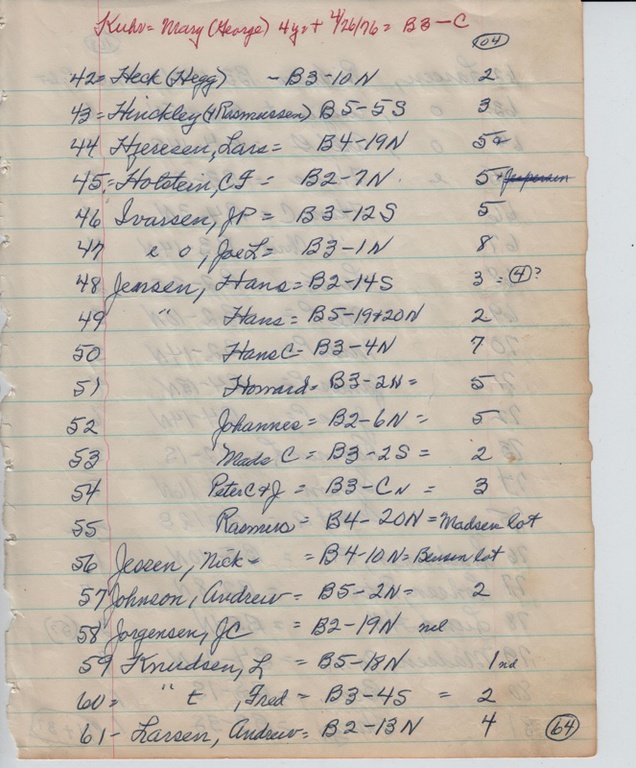 Kuhn= Mary (George) 4yrt 4/26/76 = B3-C
104
42= Heck (Hegg) - B3-10N 2
43= Hinckley (+Rasmussen) B5-5S 3
44 Hjeresen, Lars= B4-19N 5+
45= Holstein, CF= B2-7N. 5+ Jespersen
46 Ivarsen, JP= B3-12S 5
47 e o, Joe L= B3-1N 8
48 Jensen, Hans= B2-14S 3 = (4)?
49 " Hans= B5-19+20N 2
50 Hans C= B3-4N 7
51 Howard= B3-2N= 5
52 Johannes= B2-6N= 5
53 Mads C= B3-2S= 2
54 Peter C & J= B3-CN= 3
55 Rasmus= B4-20N=Madsen lot
56 Jessen, Nick- =B4-10N=Bensen lot
57 Johnson, Andrew= B5-2N= 2
58 Jorgensen, JC = B2-19N nel
59 Knudsen, L = B5-18N 1 nd
60= " t, Fred = B3-4S = 2
61- Larsen, Andrew= B2-13N 4 64